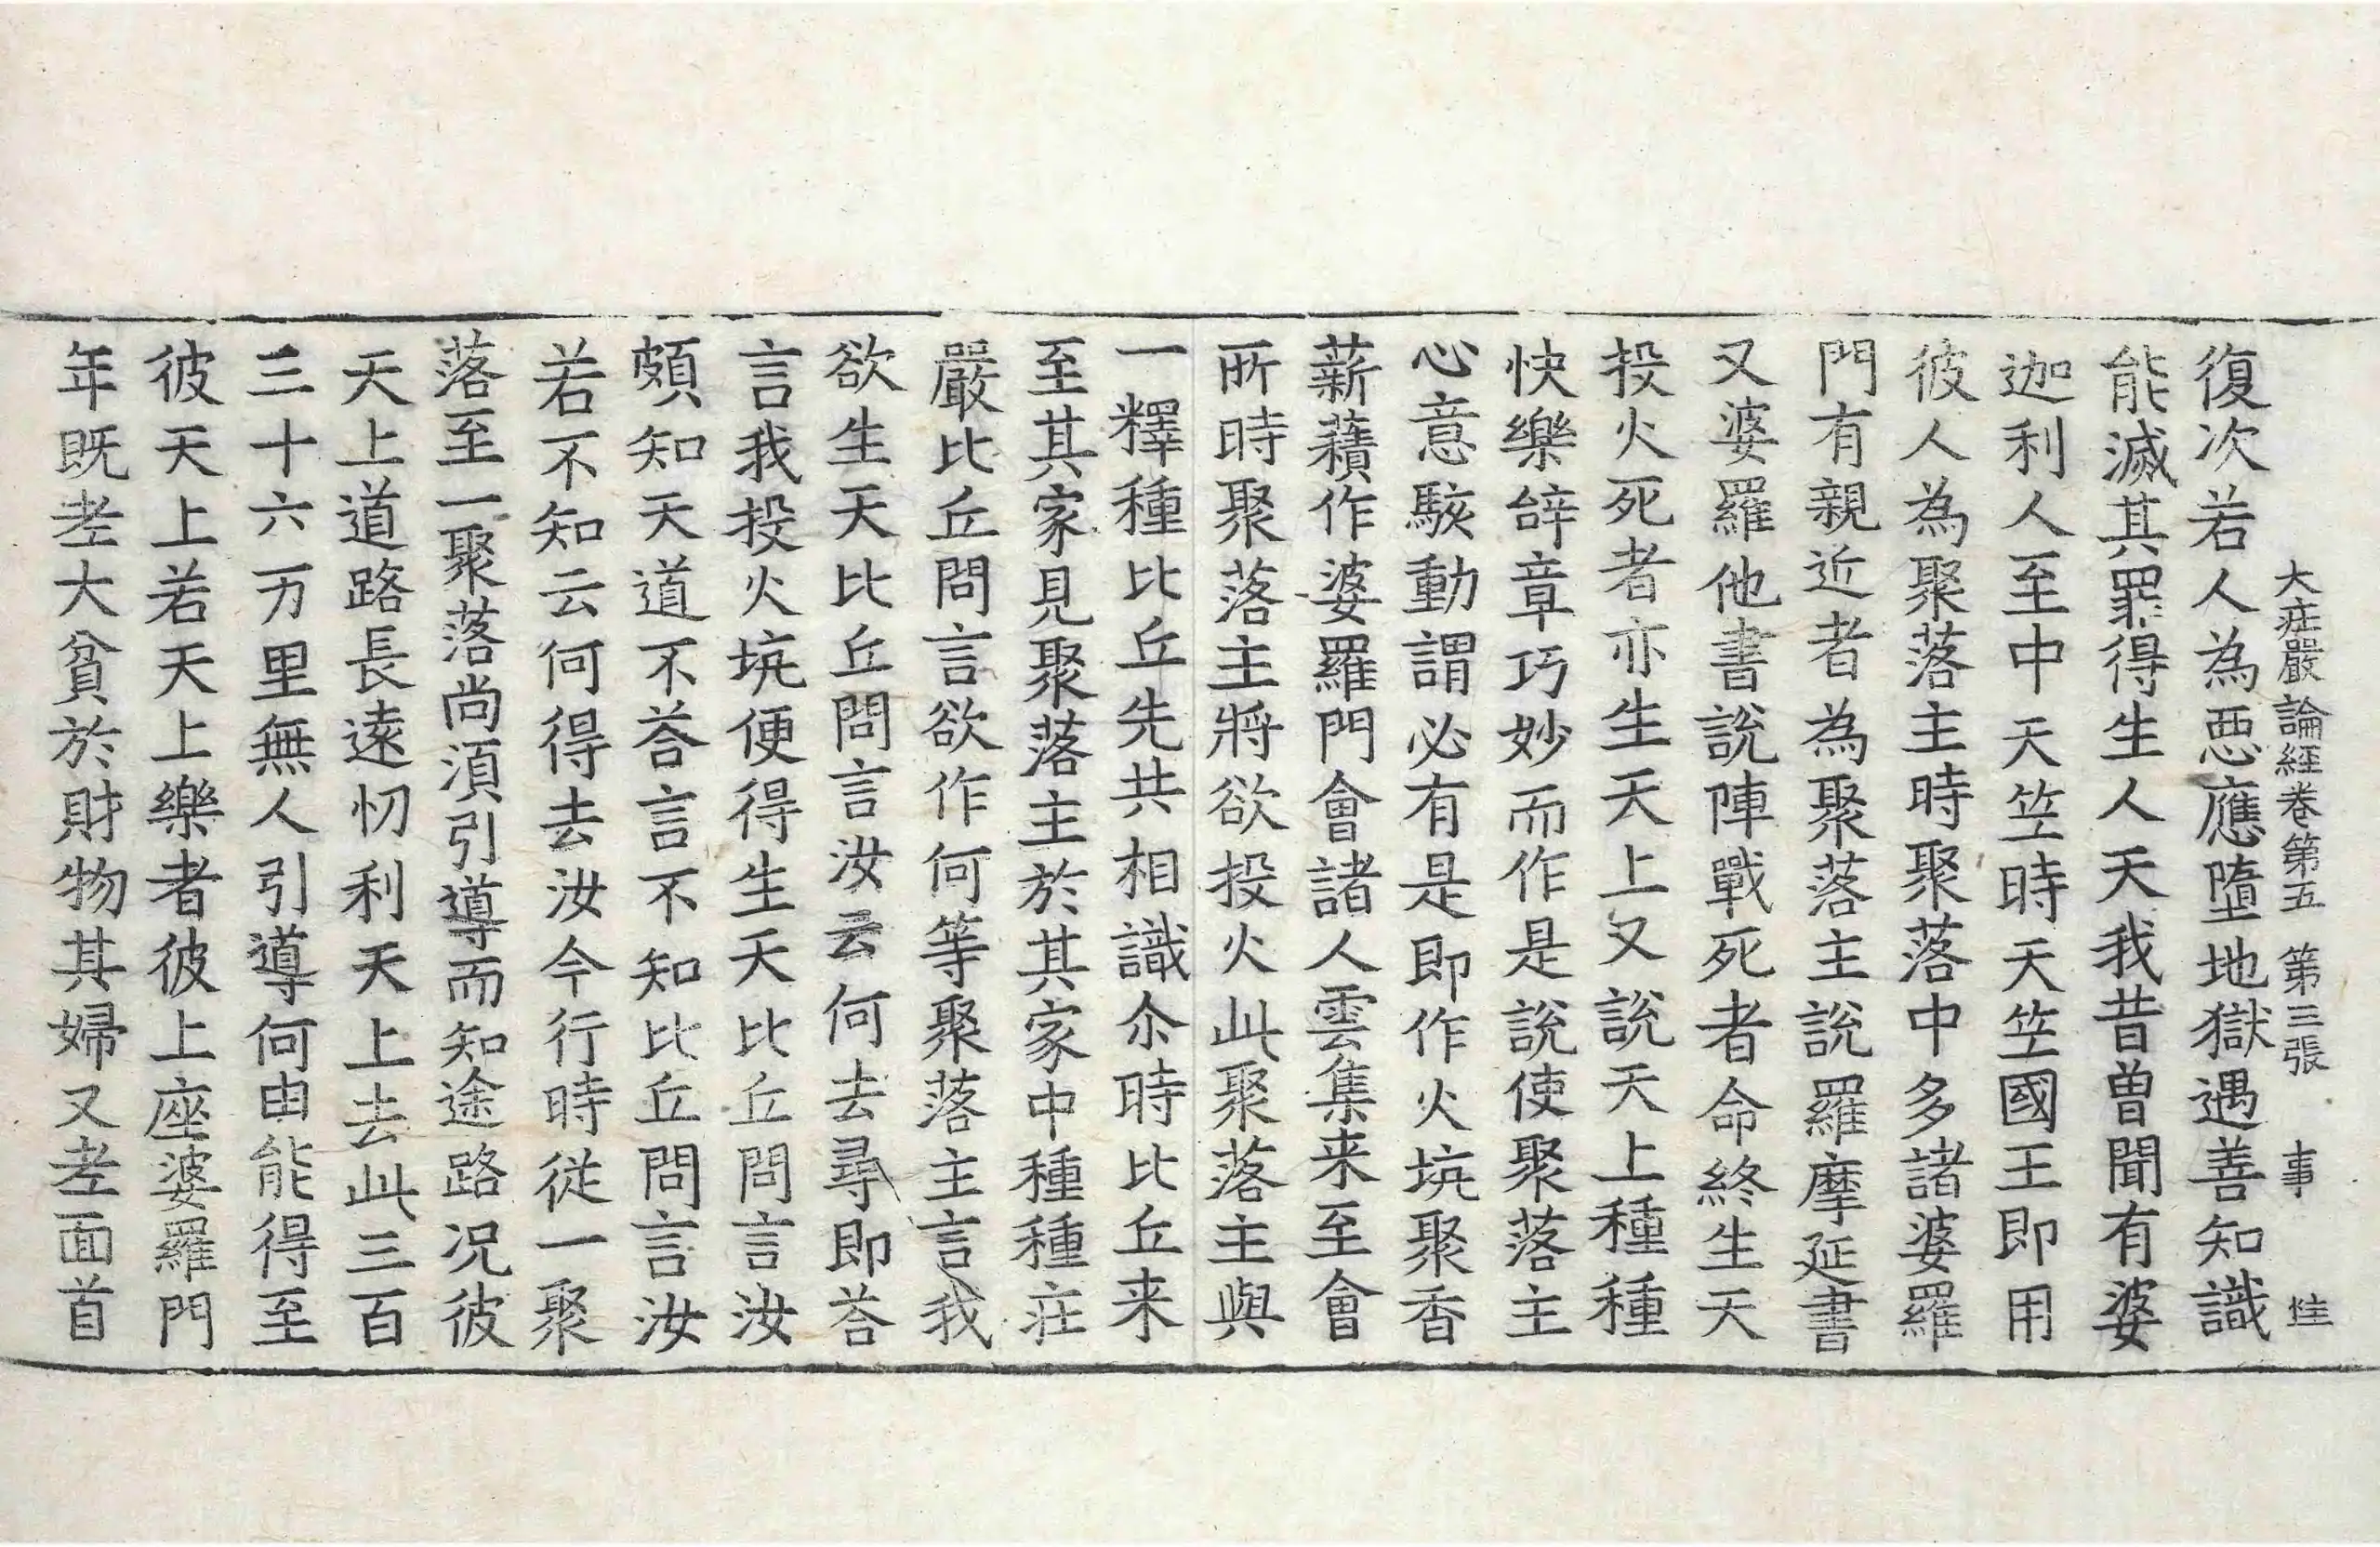 大㽵嚴論經卷第五 第三張 事
復次若人為惡應墮地獄遇善知識
能滅其罪得生人天我昔曾聞有婆
迦利人至中天竺時天竺國王即用
彼人為聚落主時聚落中多諸婆羅
門有親近者為聚落主說羅摩延書
又婆羅他書說陣戰死者命終生天
投火死者亦生天上又說天上種種
快樂辝章巧妙而作是說使聚落主
心意駭動謂必有是即作火坑聚香
薪䕆作婆羅門會諸人雲集来至會
所時聚落主將欲投火此聚落主與
一釋種比丘先共相識尒時比丘来
至其家見聚落主於其家中種種㽵
嚴比丘問言欲作何等聚落主言我
欲生天比丘問言汝云何去尋即荅
言我投火坑便得生天比丘問言汝
頗知天道不荅言不知比丘問言汝
若不知云何得去汝今行時從一聚
落至一聚落尚湏引導而知途路况彼
天上道路長遠忉利天上去此三百
三十六万里無人引導何由能得至
彼天上若天上樂者彼上座婆羅門
年既老大貧於財物其婦又老面首